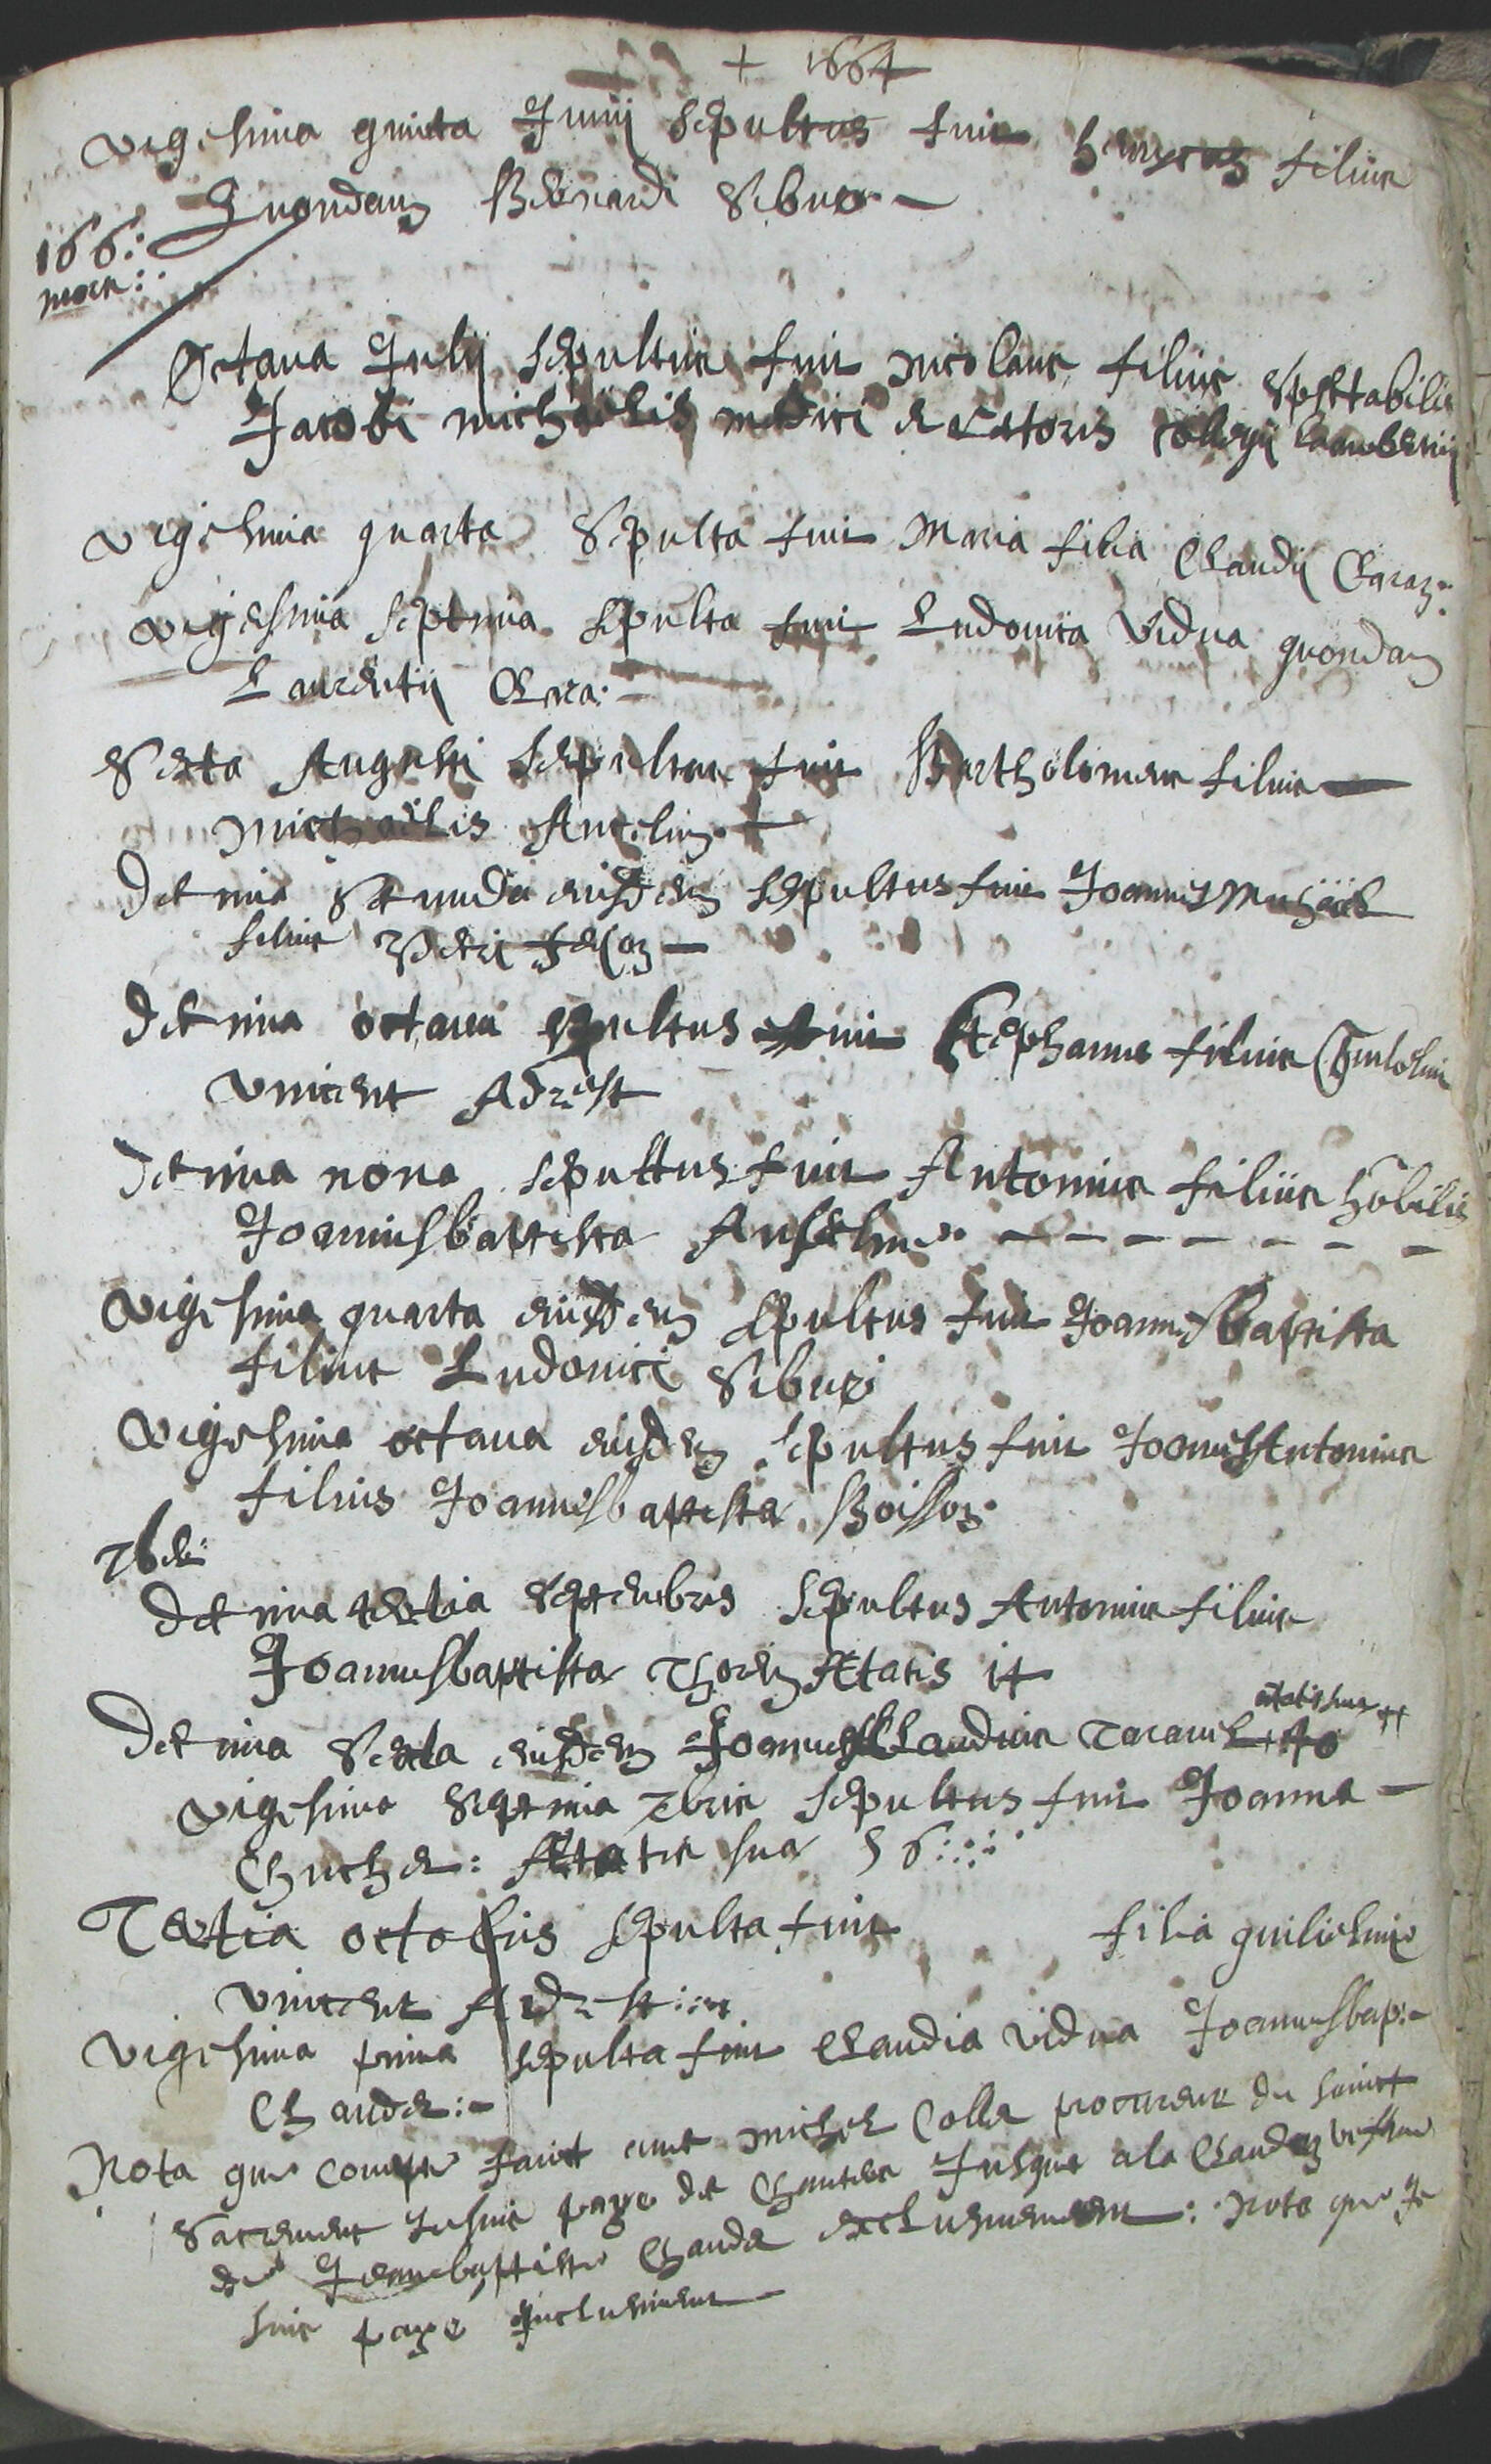 + 1664
vigesima quinta Junij sepultus fuit henricus filius
quondam Bernardi Sibue
166:
mors:
Octaua Julij sepultus fuit nicolaus filius spectabilis
Jacobi michaelis medici rectoris collegij lamberini
vigesima quarta sepulta fuit Maria filia Claudij
vigesima septima sepulta fuit Ludouica vidua quondam
Laurentij
Sexta Augusti sepultus fuit Bartholomeus filius
michaelis
Decima secunda eiusdem sepultus fuit Joannes Michael
filius Petri
Decima octaua sepultus fuit stephanus filius Guilelmi
vincent Adrest
Decima nona sepultus fuit Antonius filius Nobilis
Joannisbaptista Anselme
Vigesima quarta eiusdem sepultus fuit Joannesbaptista
filius Ludouici Sibue
Vigesima octaua eiusdem sepultus fuit JoannesAntonius
filius Joannisbaptista Boisson
7bre:
Decima tertia septembris sepultus Antonius filius
Joannisbaptista Ætatis 14
Decima sexta eiusdem JoannesClaudius ætatis suæ
vigesima septima 7bris sepultus fuit Joanna
Ætatis sua 56
Tertia octobris sepulta fuit filia guilielmi
vincent Adrest
vigesima prima sepulta fuit Claudia vidua Joannisbap:
Chande:
Nota que compte faict auec michel Colla procureur du sainct
Sacrement Je suis paye de Chantes Jusque a la Chanden vefue
de Jeanbaptiste Chanda exclusiuement: Nota que Je
suis paye Inclusiuement